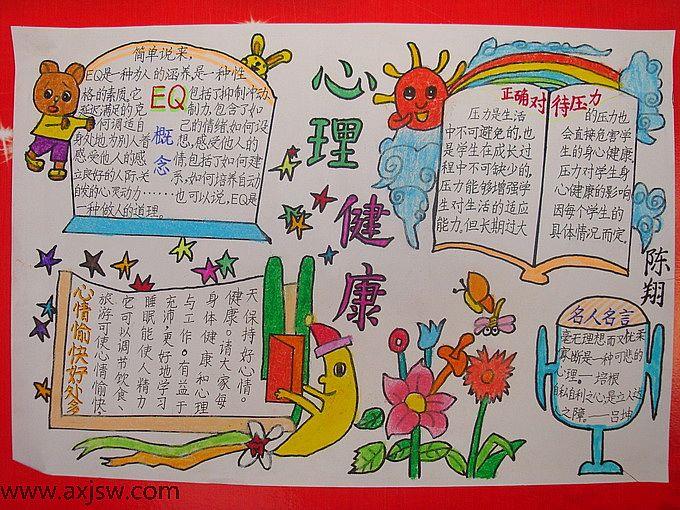 心理健康
简单说来，
EQ是一种为人的涵养，是一种性
格的素质。它
EQ
概念
包括了抑制冲动、
延迟满足的克
制力，包含了如
何调适自
己的情绪，如何设
身处地为别人着
想，感受他人的
感受他人的感
情，包括了如何建
立良好的人际关
系，如何培养自动
自发的心灵动力……也可以说，EQ是
一种做人的道理。
正确对待压力
压力是生活
中不可避免的，也
是学生在成长过
程中不可缺少的，
压力能够增强学
生对生活的适应
能力，但长期过大
的压力也
会直接危害学
生的身心健康，
压力对学生身
心健康的影响
因每个学生的
具体情况而定。
陈翔
心情愉快好处多
旅游可使心情愉快，
它可以调节饮食、
睡眠能使人精力
充沛，更好地学习
与工作。有益于
身体健康和心理
健康。请大家每
天保持好心情。
名人名言
毫无理想而又优柔
寡断是一种可悲的
心理。——培根
自私自利之心，是立人达
之障。——吕坤
www.axjsw.com